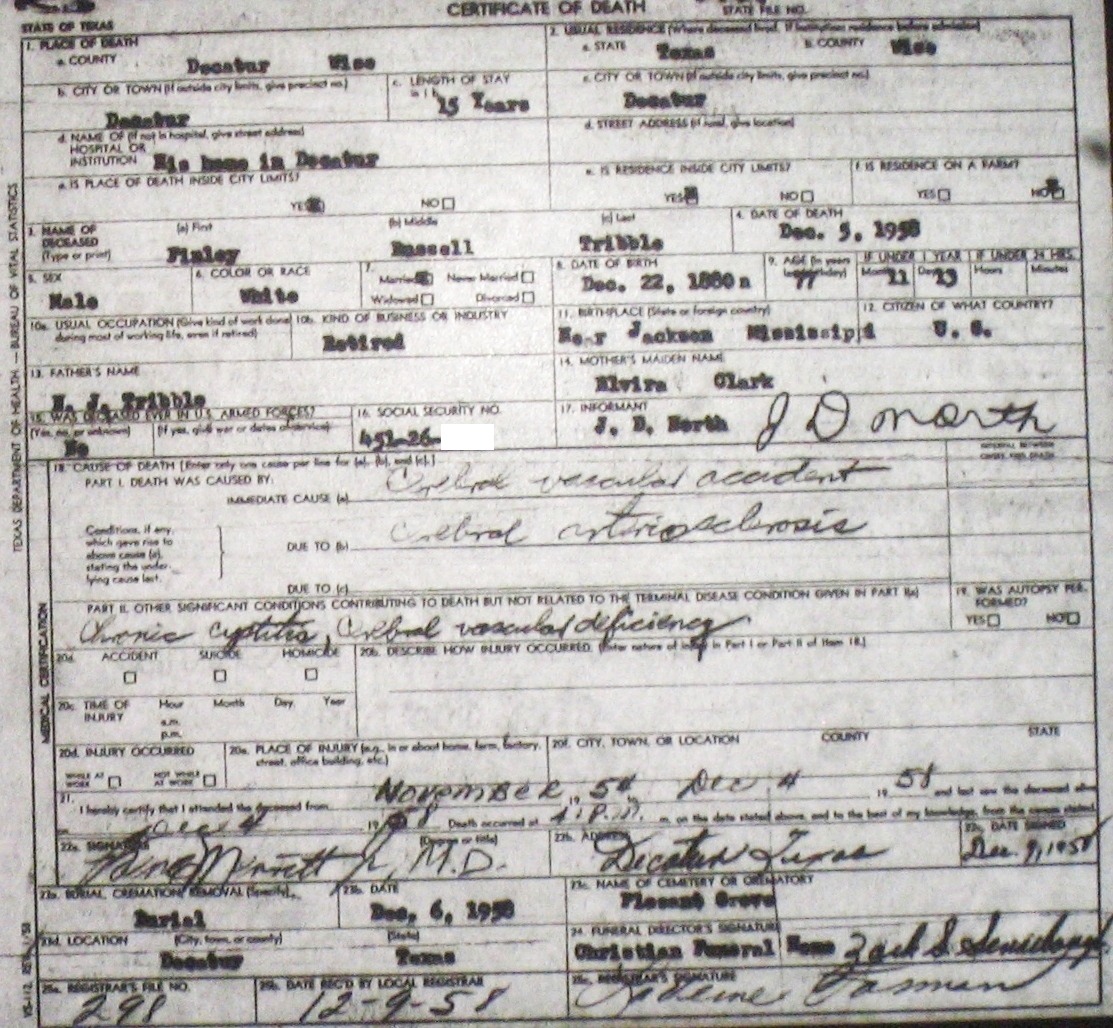 CERTIFICATE OF DEATH
STATE FILE NO.
STATE OF TEXAS
1. PLACE OF DEATH
a. COUNTY Decatur Wise
2. USUAL RESIDENCE (Where deceased lived. If institution: residence before admission)
a. STATE Texas b. COUNTY Wise
b. CITY OR TOWN (If outside city limits, give precinct no.) Decatur
c. LENGTH OF STAY in 1 b. 15 Years
c. CITY OR TOWN (If outside city limits, give precinct no.) Decatur
d. NAME OF (If not in hospital, give street address) HOSPITAL OR INSTITUTION His home in Decatur
d. STREET ADDRESS (If rural, give location)
e. IS PLACE OF DEATH INSIDE CITY LIMITS?
YES NO
e. IS RESIDENCE INSIDE CITY LIMITS?
YES NO
f. IS RESIDENCE ON A FARM?
YES NO
3. NAME OF DECEASED (Type or print)
(a) First (b) Middle (c) Last
Finley Russell Tribble
4. DATE OF DEATH
Dec. 5, 1958
5. SEX
Male
6. COLOR OR RACE
White
7. Married Never Married
Widowed Divorced
8. DATE OF BIRTH
Dec. 22, 1880
9. AGE (In years last birthday) 77
IF UNDER 1 YEAR Months 11 Days 13
IF UNDER 24 HRS. Hours Minutes
10a. USUAL OCCUPATION (Give kind of work done during most of working life, even if retired)
10b. KIND OF BUSINESS OR INDUSTRY
Retired
11. BIRTHPLACE (State or foreign country)
Jackson Mississippi
12. CITIZEN OF WHAT COUNTRY?
U. S.
13. FATHER'S NAME
J. Tribble
14. MOTHER'S MAIDEN NAME
Elvira Clark
15. WAS DECEASED EVER IN U.S. ARMED FORCES?
(Yes, no, or unknown) (If yes, give war or dates of service)
No
16. SOCIAL SECURITY NO.
451-26-
17. INFORMANT
J. D. North J D North
INTERVAL BETWEEN
18. CAUSE OF DEATH [Enter only one cause per line for (a), (b), and (c).]
PART I. DEATH WAS CAUSED BY:
IMMEDIATE CAUSE (a) Cerebral vascular accident
Conditions, if any, which gave rise to above cause (a), stating the under-lying cause last.
DUE TO (b) Cerebral arteriosclerosis
DUE TO (c)
PART II. OTHER SIGNIFICANT CONDITIONS CONTRIBUTING TO DEATH BUT NOT RELATED TO THE TERMINAL DISEASE CONDITION GIVEN IN PART I(a)
Chronic cystitis, Cerebral vascular deficiency
19. WAS AUTOPSY PER-FORMED?
YES NO
20a. ACCIDENT SUICIDE HOMICIDE
20b. DESCRIBE HOW INJURY OCCURRED. (Enter nature of injury in Part I or Part II of Item 18.)
20c. TIME OF INJURY Hour Month Day Year
a.m.
p.m.
20d. INJURY OCCURRED
WHILE AT WORK NOT WHILE AT WORK
20e. PLACE OF INJURY (e.g., in or about home, farm, factory, street, office building, etc.)
20f. CITY, TOWN, OR LOCATION COUNTY STATE
21. I hereby certify that I attended the deceased from November 19 54 Dec 4 19 58 and last saw the deceased alive
Dec 4 19 58 Death occurred at P.M. m. on the date stated above, and to the best of my knowledge, from the causes stated.
22a. SIGNATURE (Degree or title)
M.D.
22b. ADDRESS
Decatur Texas
22c. DATE SIGNED
Dec. 9, 1958
23a. BURIAL, CREMATION, REMOVAL (Specify)
Burial
23b. DATE
Dec. 6, 1958
23c. NAME OF CEMETERY OR CREMATORY
Plesant Grove
23d. LOCATION (City, town, or county) (State)
Decatur Texas
24. FUNERAL DIRECTOR'S SIGNATURE
Christian Funeral Home
25a. REGISTRAR'S FILE NO.
298
25b. DATE REC'D BY LOCAL REGISTRAR
12-9-58
25c. REGISTRAR'S SIGNATURE
TEXAS DEPARTMENT OF HEALTH — BUREAU OF VITAL STATISTICS
MEDICAL CERTIFICATION